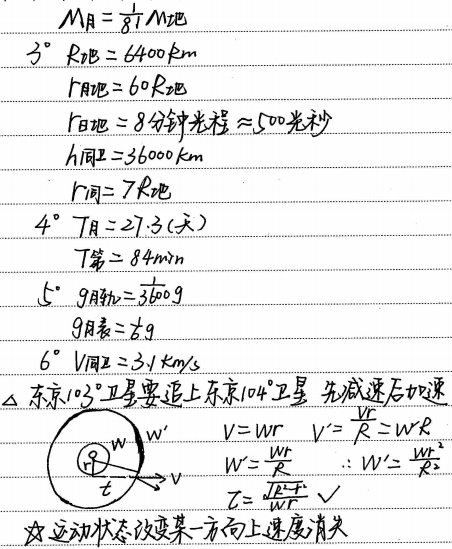 M月 = 1/81 M地
3° R地 = 6400km
r月地 = 60R地
r日地 = 8分钟光程 ≈ 500光秒
h同卫 = 36000km
r同 = 7R地
4° T月 = 27.3(天)
T第 = 84min
5° g月轨 = 1/3600 g
g月表 = 1/6 g
6° V同卫 = 3.1km/s
△ 东京103°卫星要追上东京104°卫星 先减速后加速
V = Wr V' = Vr/R = WR
W W'
W' = Wr/R ∴ W' = Wr²/R²
r t V
t = √(R²-r²)/Wr ✓
☆ 运动状态改变某一方向上速度消失